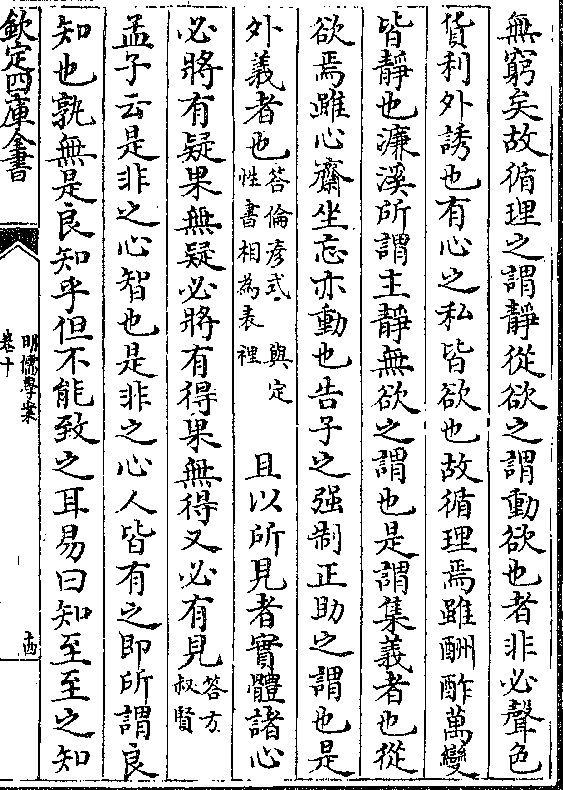 無窮矣故循理之謂靜從欲之謂動欲也者非必聲色
貨利外誘也有心之私皆欲也故循理焉雖酬酢萬變
皆靜也濂溪所謂主靜無欲之謂也是謂集義者也從
欲焉雖心齋坐忘亦動也告子之强制正助之謂也是
外義者也答倫彦式 與定性書相為表裡 且以所見者實體諸心
必將有疑果無疑必將有得果無得又必有見答方叔賢
孟子云是非之心智也是非之心人皆有之即所謂良
知也孰無是良知乎但不能致之耳易曰知至至之知
欽定四庫全書
明儒學案
卷十
十四